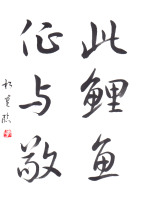 此鲤鱼
征与敬